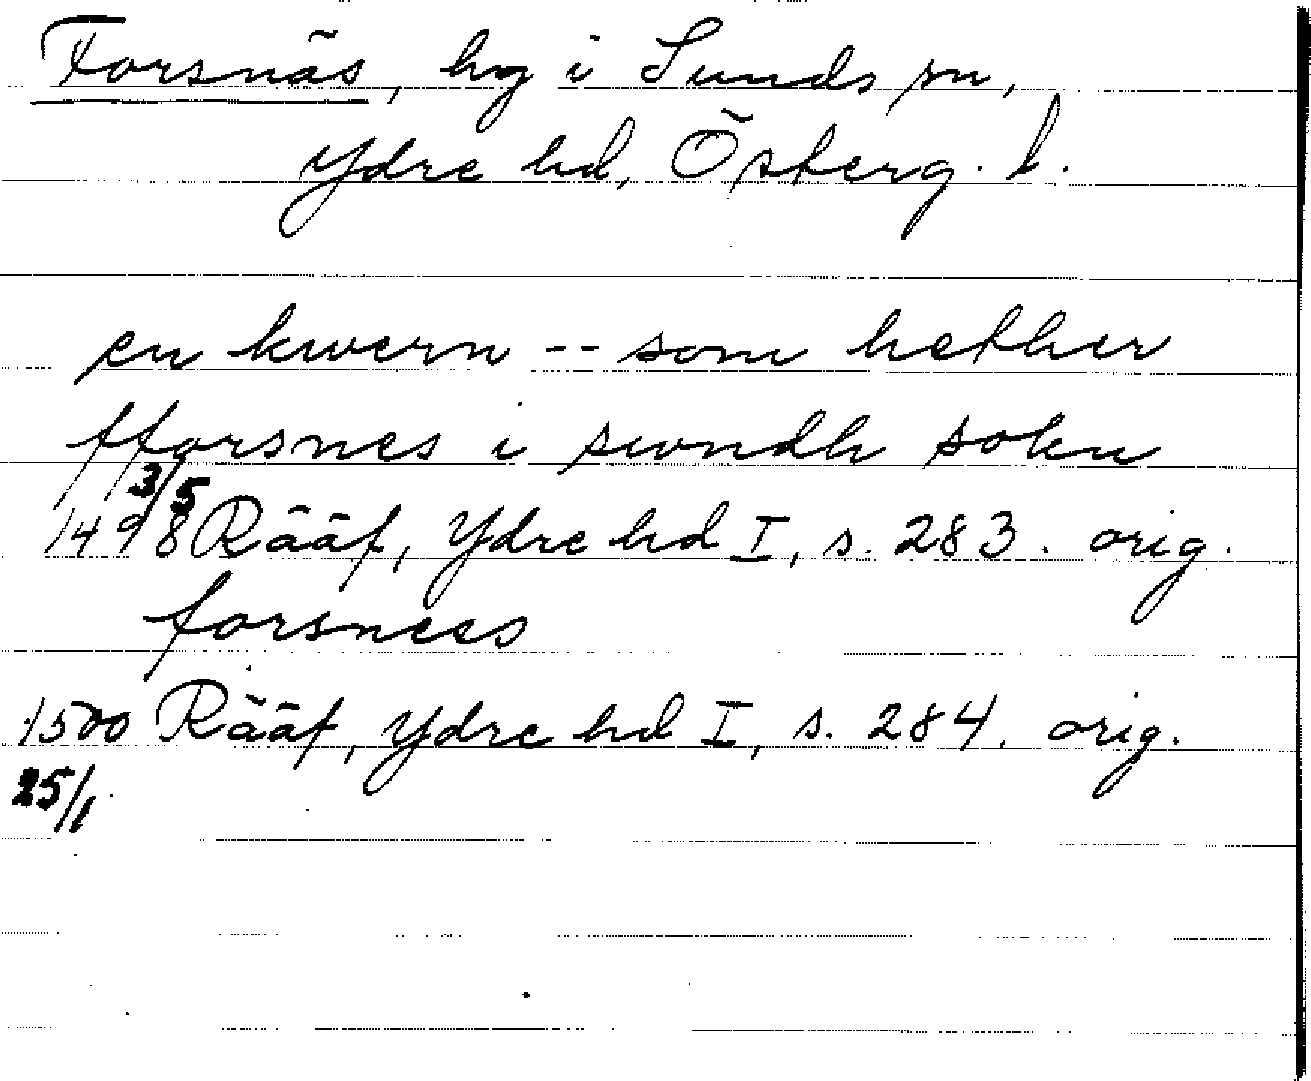 Forsnäs, hg i Sunds sn,
Ydre hd, Österg. l.
en kwern -- som hether
fforsnes i swndh sokn
3/5
1498 Rääf, Ydre hd I, s. 283. orig.
forsnees
1500 Rääf, Ydre hd I, s. 284. orig.
25/1